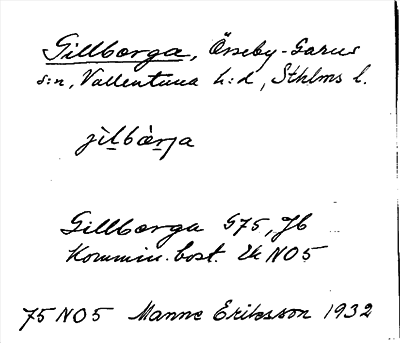 Gillberga, Össeby-Garns
s:n, Vallentuna h:d, Sthlms l.
jìlbær̀ja
Gillberga G75, Jb
Kommin. bost. Ek NO5
75 NO5 Manne Eriksson 1932